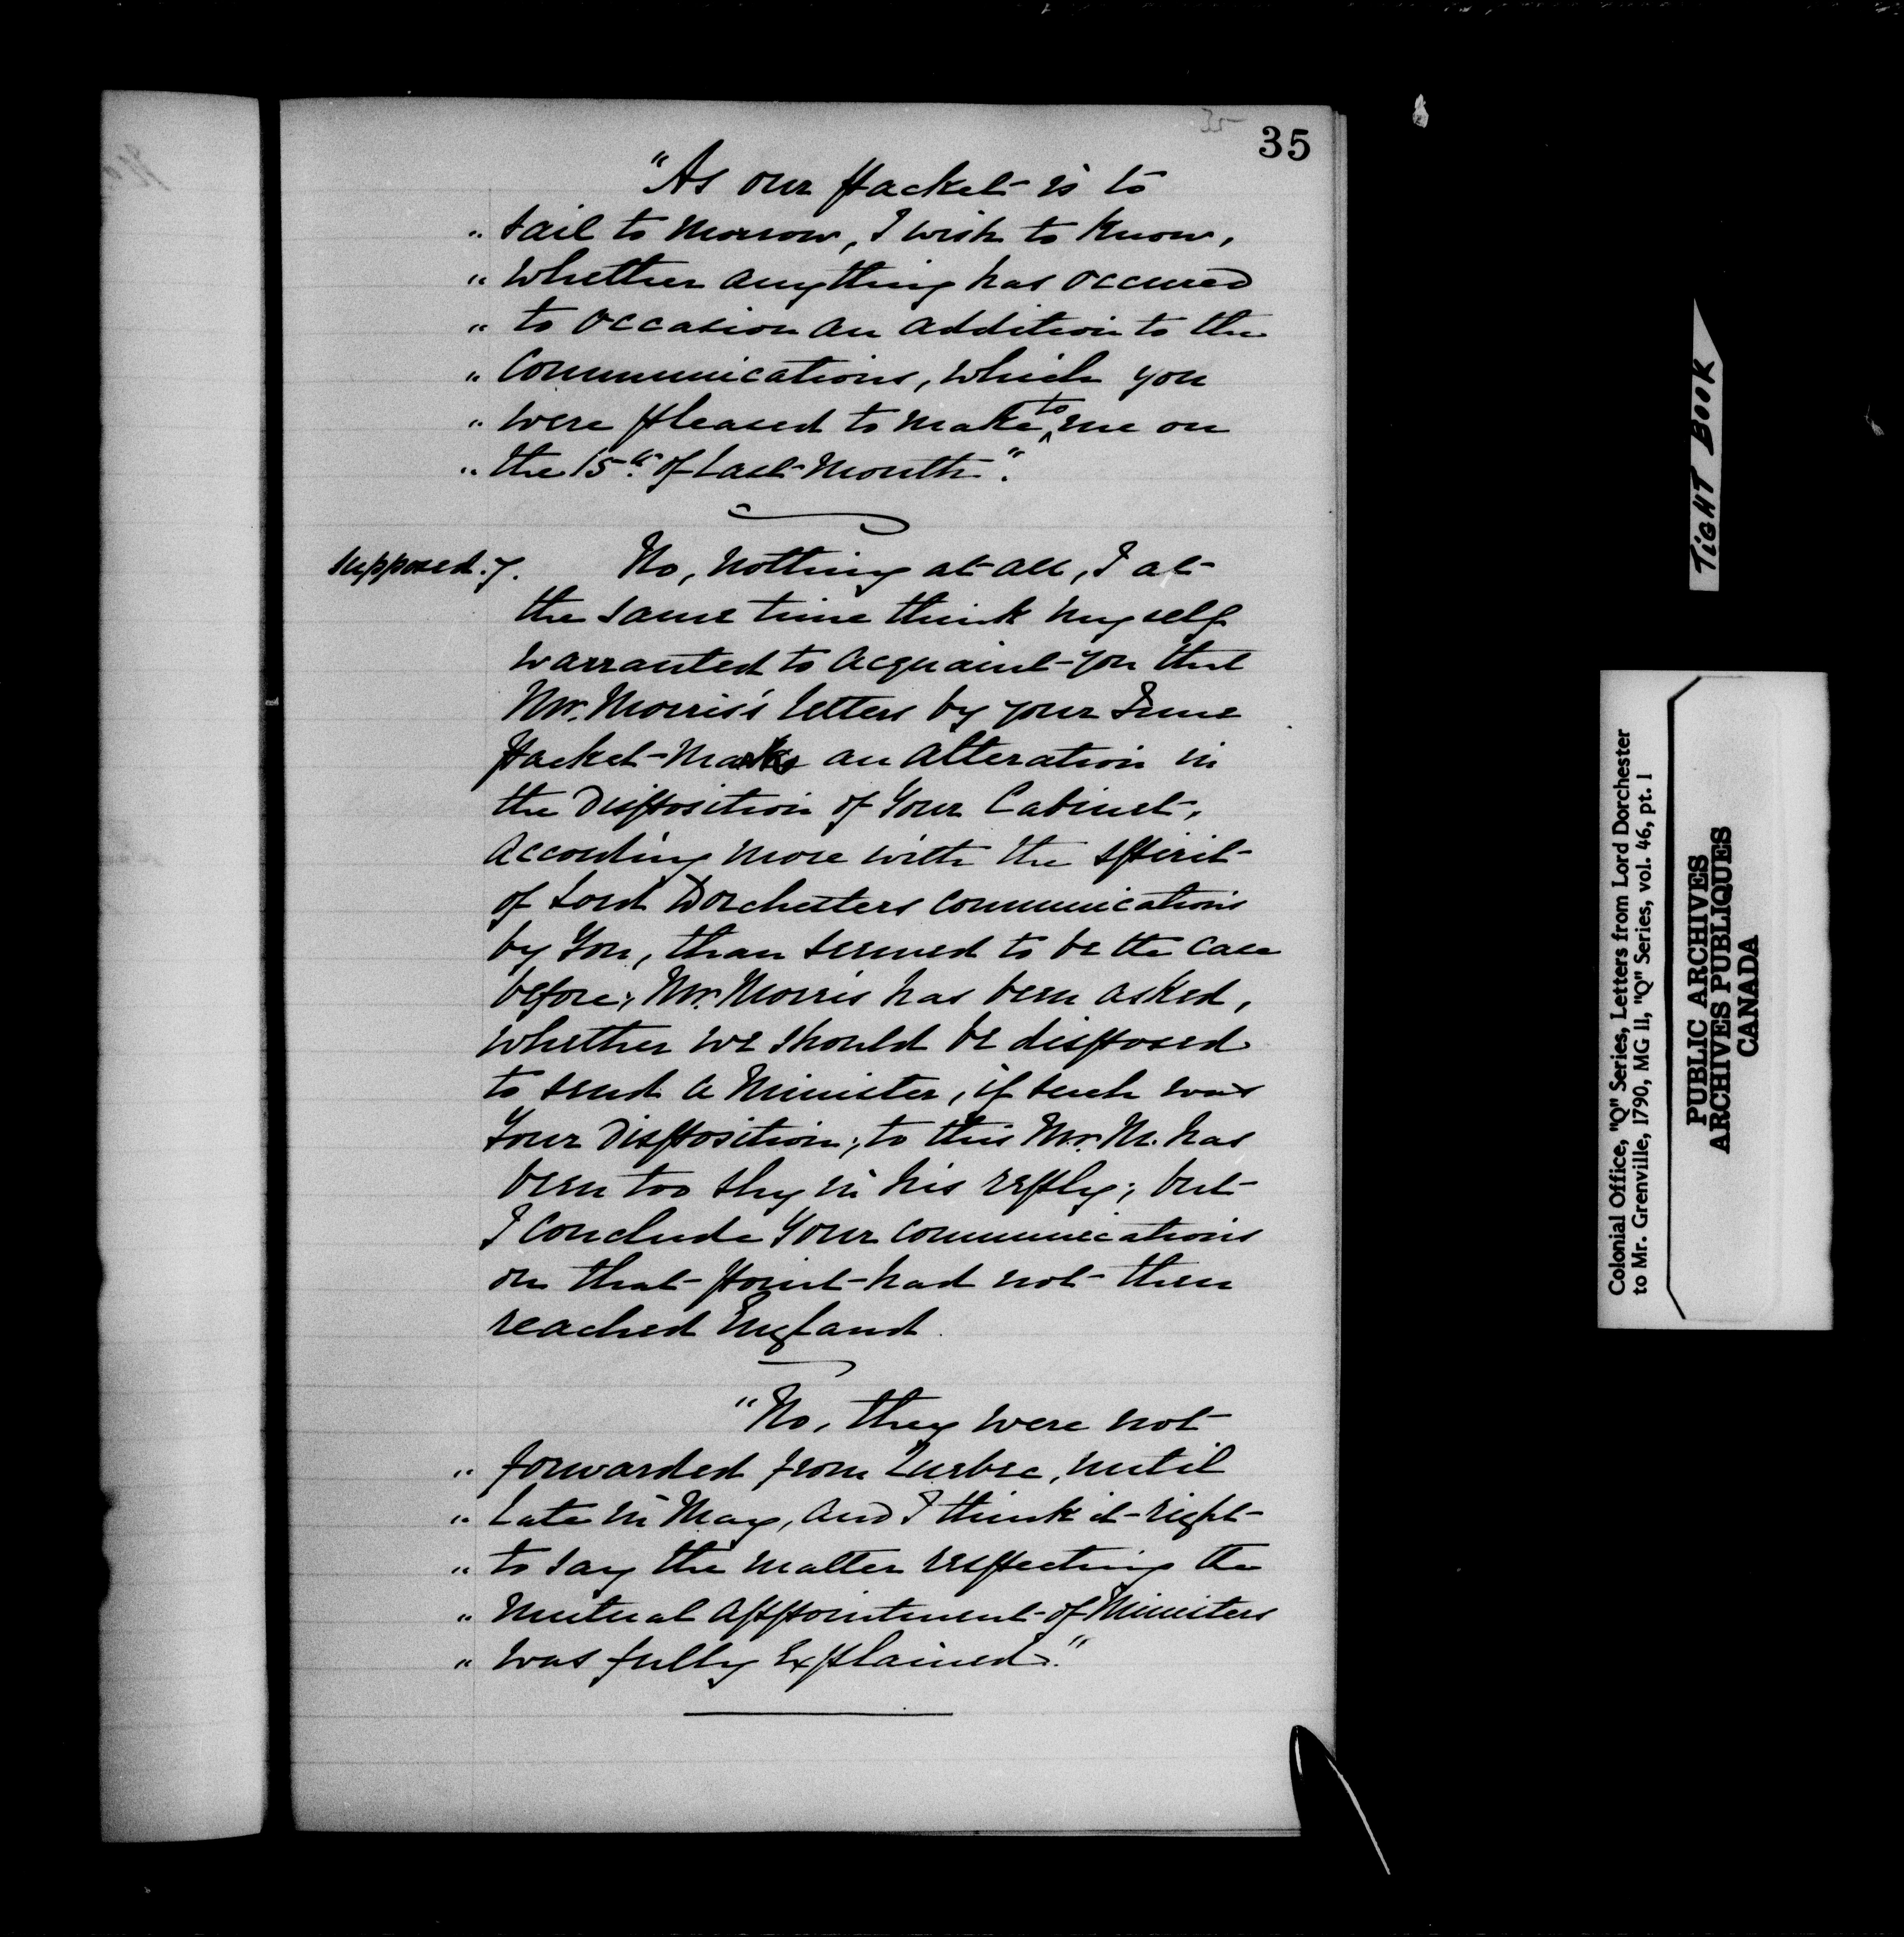 35
35
"As our packet is to
" sail to morrow, I wish to know,
" whether anything has occured
" to occasion an addition to the
" communications, which you
" were pleased to make to me on
" the 15th. of last month."
supposed. 7. No, nothing at all, I at
the same time think myself
warranted to acquaint you that
Mr. Morris's letters by your June
packet marks an alteration in
the disposition of Your Cabinet,
according more with the spirit
of Lord Dorchesters communications
by You, than seemed to be the case
before; Mr. Morris has been asked,
whether we should be disposed
to send a Minister, if such was
Your disposition; to this Mr. M. has
been too shy in his reply; but
I conclude Your communications
on that point had not then
reached England.
"No, they were not
" forwarded from Quebec, until
" late in May, and I think it right
" to say the matter respecting the
" mutual appointment of Ministers
" was fully explained."
TIGHT BOOK
Colonial Office, "Q" Series, Letters from Lord Dorchester
to Mr. Grenville, 1790, MG 11, "Q" Series, vol. 46, pt. 1
PUBLIC ARCHIVES
ARCHIVES PUBLIQUES
CANADA